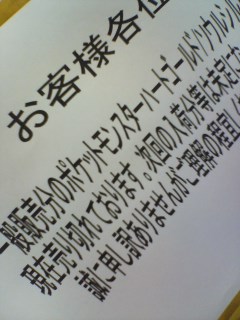 お客様各位
一般販売分のポケットモンスターハートゴールド/ソウルシル
現在売り切れております。次回の入荷分等は未定に
誠に申し訳ありませんがご理解の程宜し